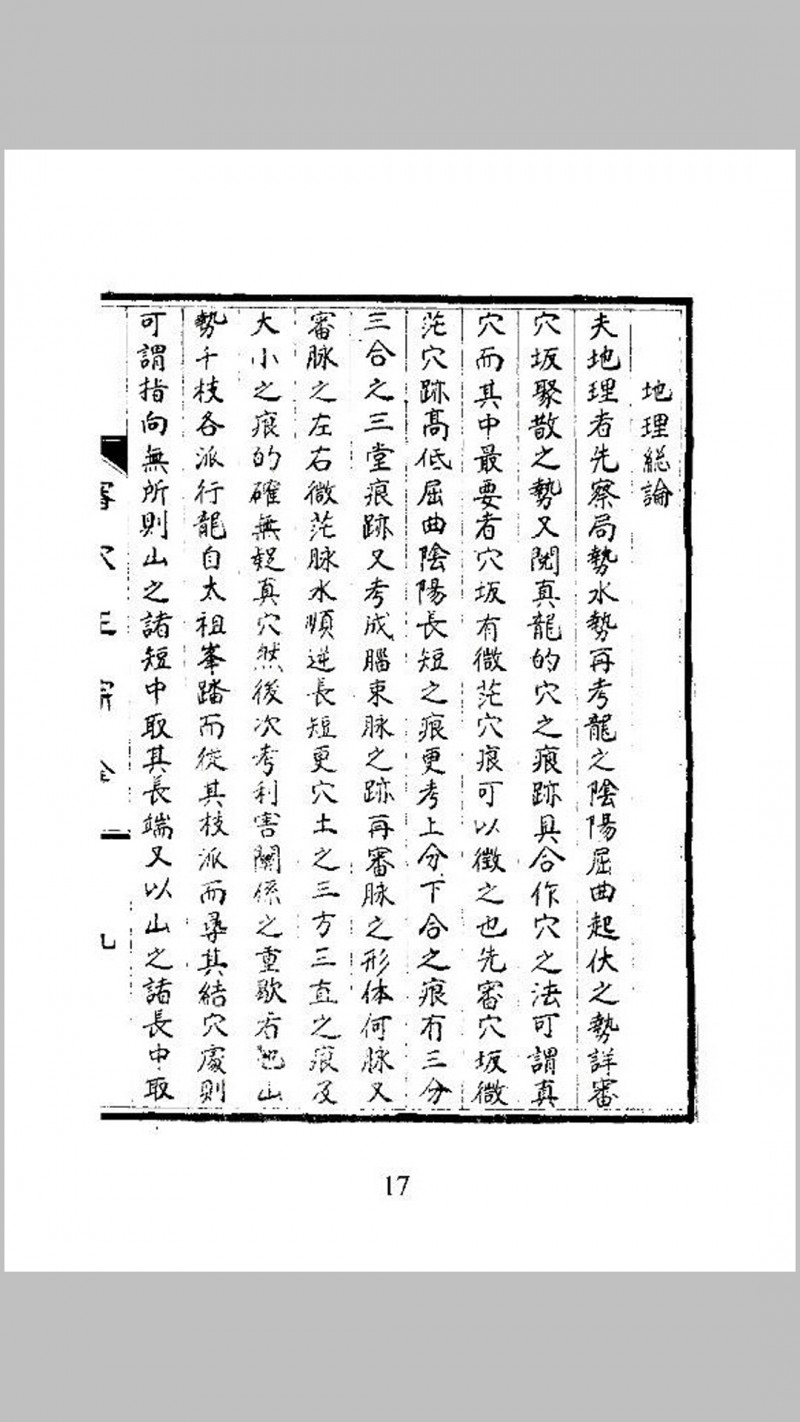 地理総論
夫地理者先察局勢水勢再考龍之陰陽屈曲起伏之勢詳審
穴坂聚散之勢又閲真龍的穴之痕跡具合作穴之法可謂真
穴而其中最要者穴坂有微茫穴痕可以徴之也先審穴坂微
茫穴跡高低屈曲陰陽長短之痕更考上分下合之痕有三分
三合之三堂痕跡又考成腦束脉之跡再審脉之形体何脉又
審脉之左右微茫脉水順逆長短更穴土之三方三直之痕及
大小之痕的確無疑真穴然後次考利害關係之重歟右地山
勢千枝各派行龍自太祖峯踏而従其枝派而尋其結穴處則
可謂指向無所則山之諸短中取其長端又以山之諸長中取
17